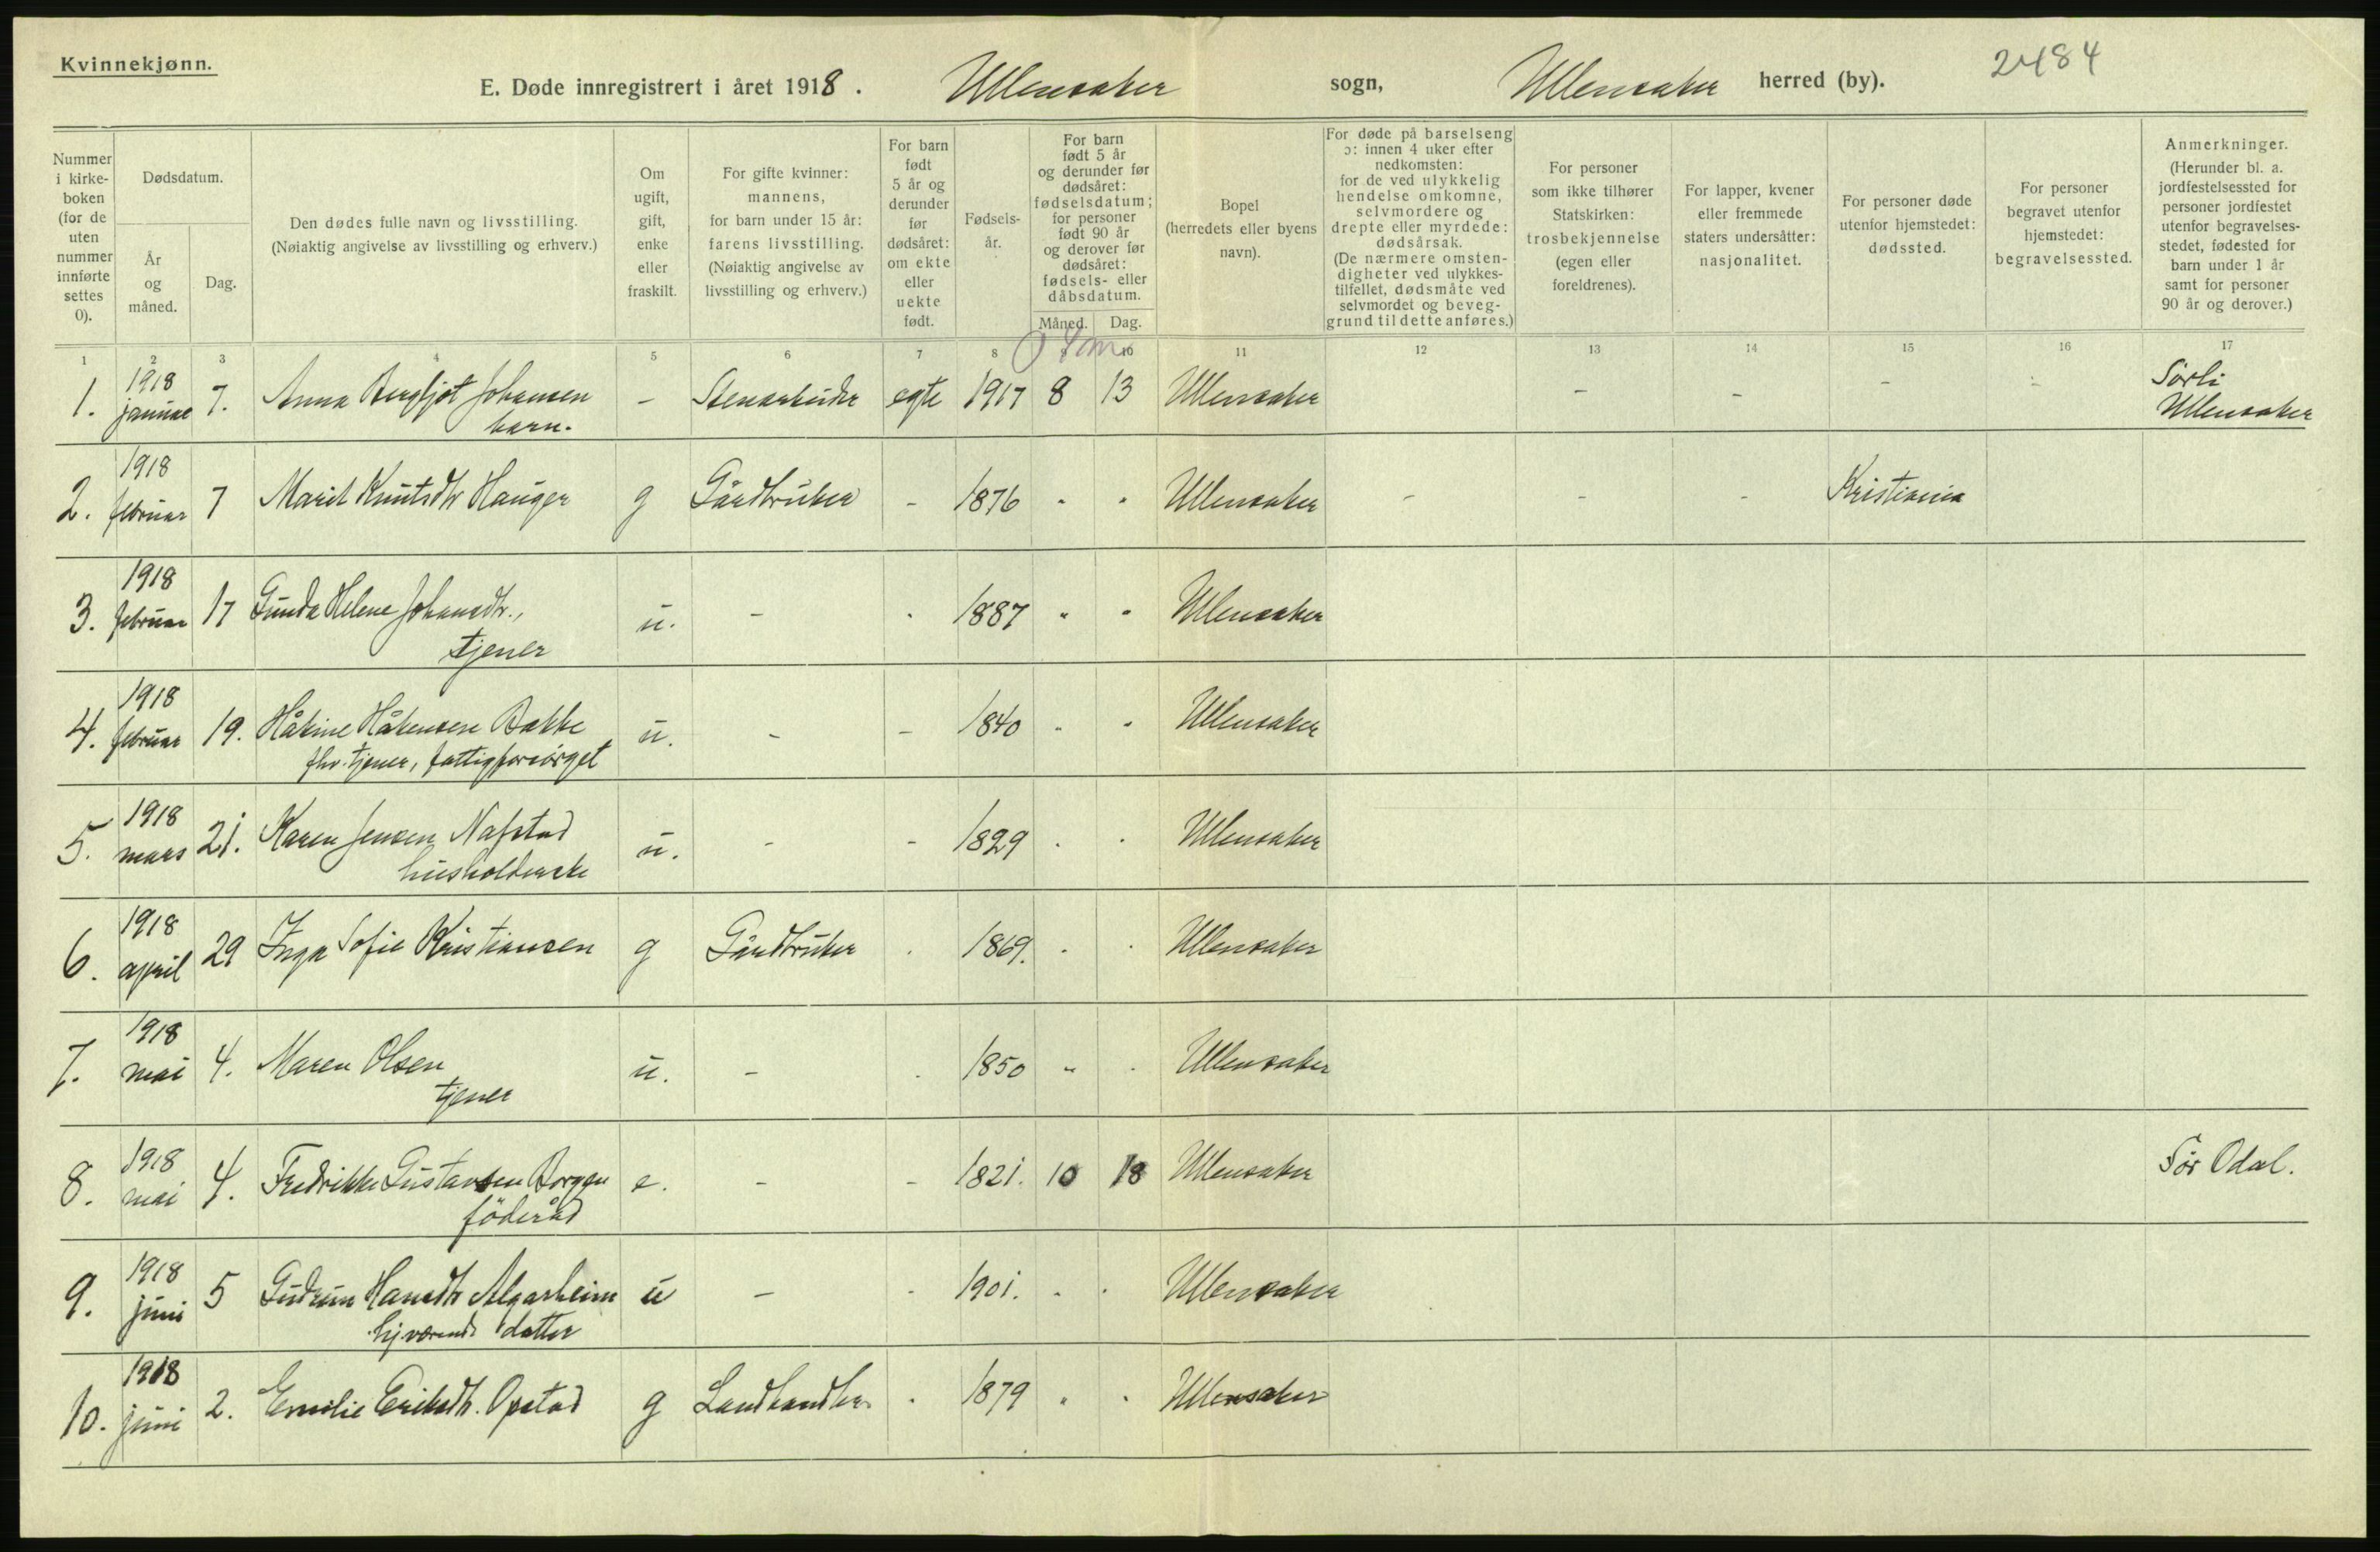 Kvinnekjønn.
2484
E. Døde innregistrert i året 1918. Ullensaker sogn, Ullensaker herred (by).
Nummer i kirke-boken (for de uten nummer innførte settes 0).
Dødsdatum.
År og måned.
Dag.
Den dødes fulle navn og livsstilling.
(Nøiaktig angivelse av livsstilling og erhverv.)
Om ugift, gift, enke eller fraskilt.
For gifte kvinner: mannens, for barn under 15 år: farens livsstilling. (Nøiaktig angivelse av livsstilling og erhverv.)
For barn født 5 år og derunder før dødsåret: om ekte eller uekte født.
Fødsels-år.
For barn født 5 år og derunder før dødsåret: fødselsdatum; for personer født 90 år og derover før dødsåret: fødsels- eller dåbsdatum.
Måned. Dag.
Bopel (herredets eller byens navn).
For døde på barselseng ɔ: innen 4 uker efter nedkomsten: for de ved ulykkelig hendelse omkomne, selvmordere og drepte eller myrdede: dødsårsak. (De nærmere omsten-digheter ved ulykkes-tilfellet, dødsmåte ved selvmordet og beveg-grund til dette anføres.)
For personer som ikke tilhører Statskirken: trosbekjennelse (egen eller foreldrenes).
For lapper, kvener eller fremmede staters undersåtter: nasjonalitet.
For personer døde utenfor hjemstedet: dødssted.
For personer begravet utenfor hjemstedet: begravelsessted.
Anmerkninger. (Herunder bl. a. jordfestelsessted for personer jordfestet utenfor begravelses-stedet, fødested for barn under 1 år samt for personer 90 år og derover.)
1 2 3 4 5 6 7 8 10 11 12 13 14 15 16 17
1. 1918 januar 7. Anna Bergljot Johansen - Stenarbeider egte 1917 8 13 Ullensaker - - - - Sørli
barn. Ullensaker
2. 1918 februar 7 Marit Knutsdtr Hauger g Gårdbruker - 1876 " " Ullensaker - - - Kristiania
3. 1918 februar 17 Gunda Helene Johansdtr., u. - - 1887 " " Ullensaker
tjener
4. 1918 februar 19. Håkine Håkensen Bakke u. - - 1840 " " Ullensaker
fhv. tjener, fattigforsørget
5. 1918 mars 21. Karen Jensen Nafstad u. - - 1829 " " Ullensaker
husholderske
6. 1918 april 29 Inga Sofie Kristiansen g Gårdbruker - 1869. " " Ullensaker
7. 1918 mai 4. Maren Olsen u. - - 1850 " " Ullensaker
tjener
8. 1918 mai 4. Fredrikke Gustavsen Borgen e. - - 1821. 10 18 Ullensaker Sør Odal.
föderåd
9. 1918 juni 5 Gudrun Hansdtr Algarheim u - - 1901. " " Ullensaker
hjværende datter
10. 1918 juni 2. Emilie Eriksdtr. Opstad g Landhandler - 1879 " " Ullensaker